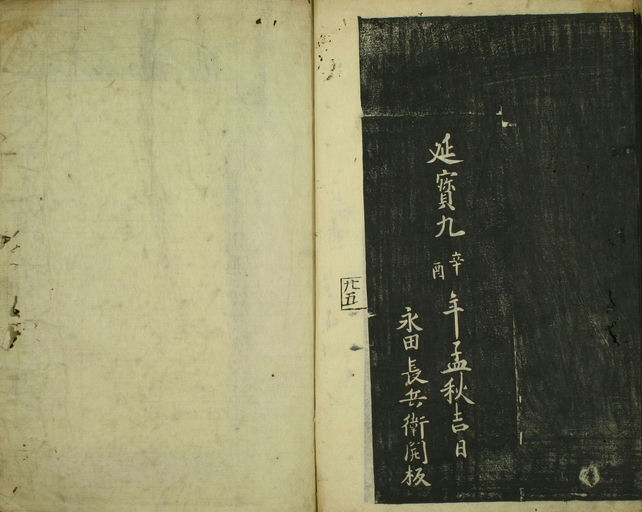 延寳九辛酉年孟秋吉日
永田長兵衛開板
九五